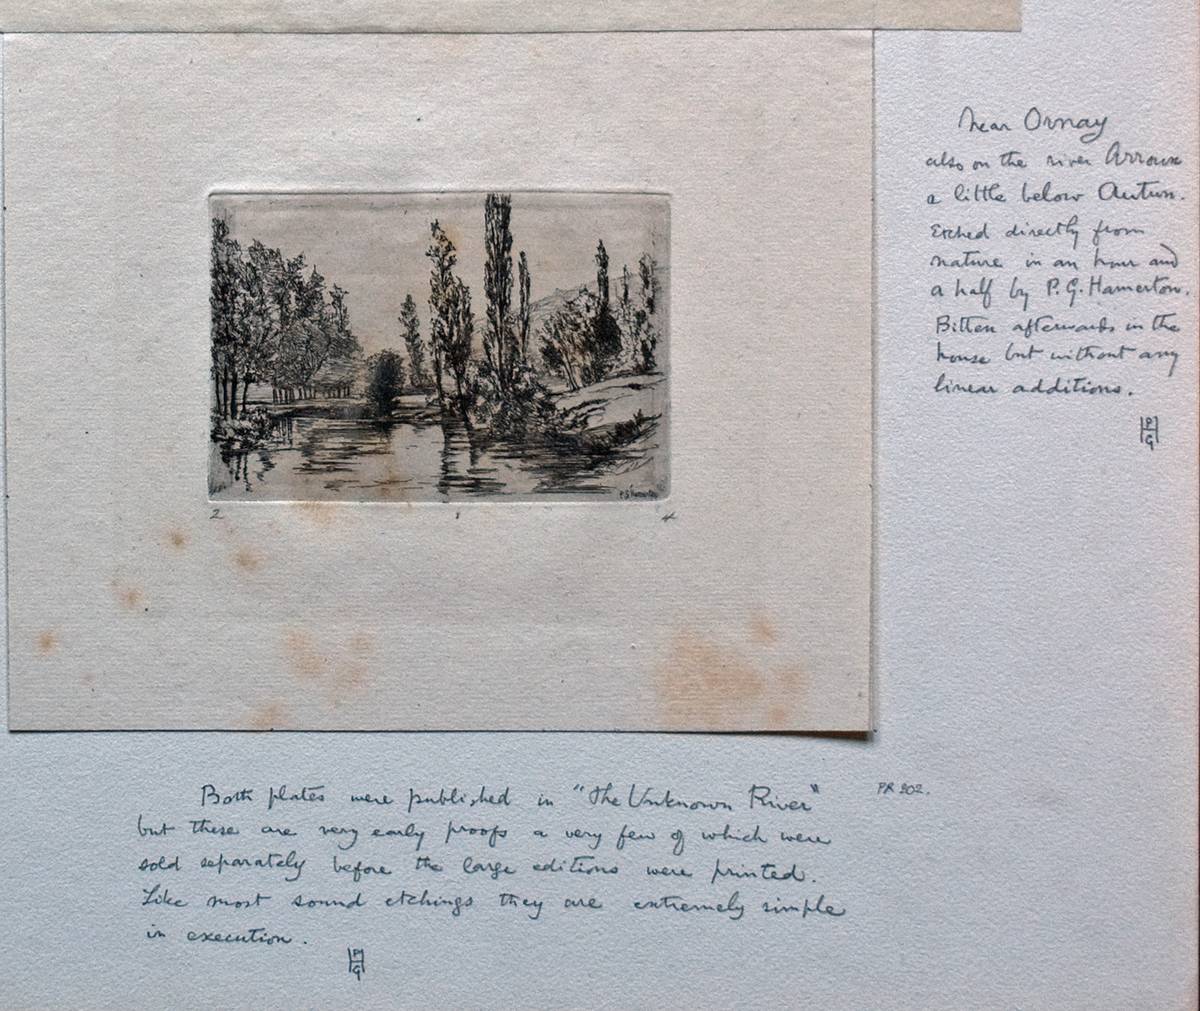 Near Ornay
also on the river Arroux
a little below Autun.
Etched directly from
nature in an hour and
a half by P.G. Hamerton.
Bitten afterwards in the
house but without any
linear additions.
PHG
P G Hamerton
2 1 4
Both plates were published in "The Unknown River"
but these are very early proofs a very few of which were
sold separately before the large editions were printed.
Like most sound etchings they are extremely simple
in execution.
PHG
PR 202.